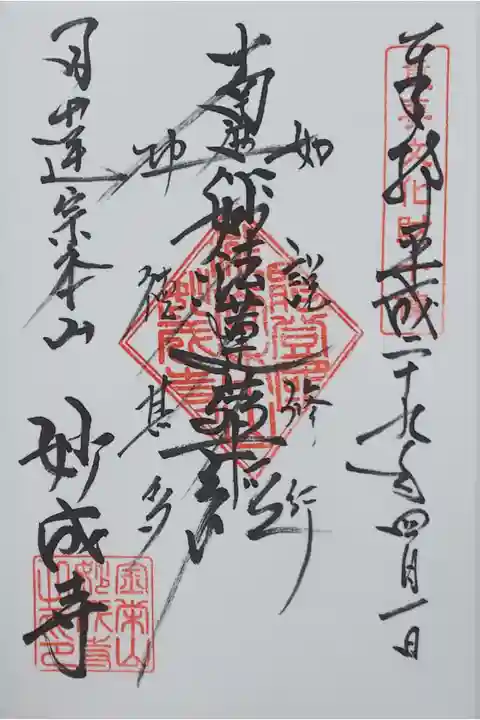 奉拝 平成二十九年四月一日
如説修行
南無妙法蓮華経
功徳甚多
日蓮宗本山
妙成寺
金栄山
妙成寺